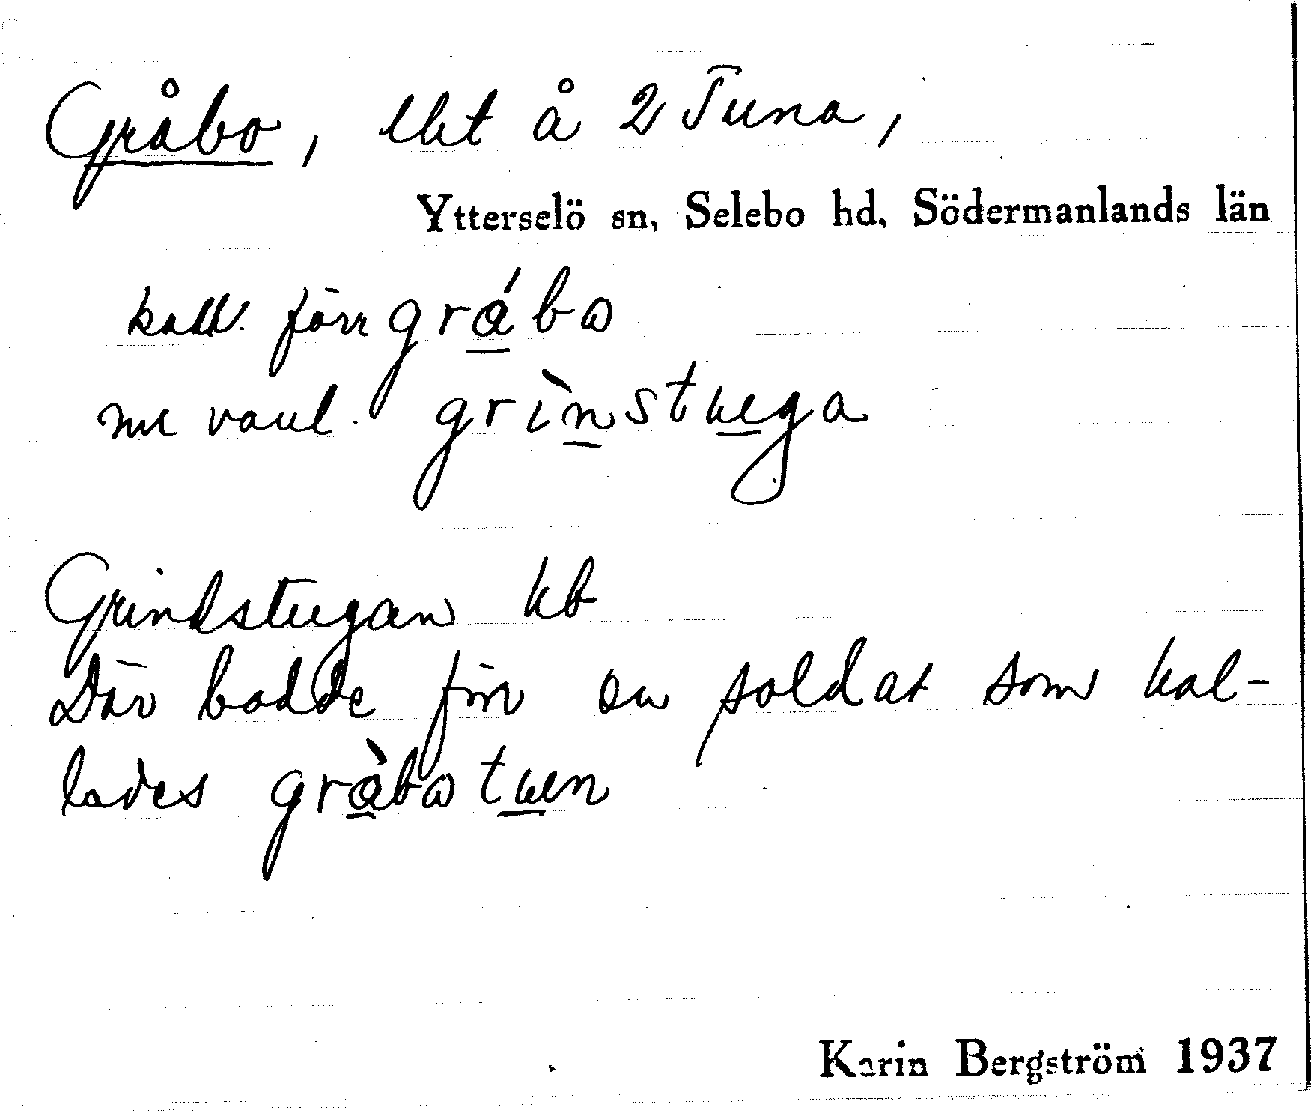 Gråbo, lht å 2 Tuna,
Ytterselö sn, Selebo hd, Södermanlands län
kall. förr gråbω
nu vanl. grìnstuga
Grindstugan kb
Där bodde förr en soldat som kal-
lades gràbωtuen
Karin Bergström 1937